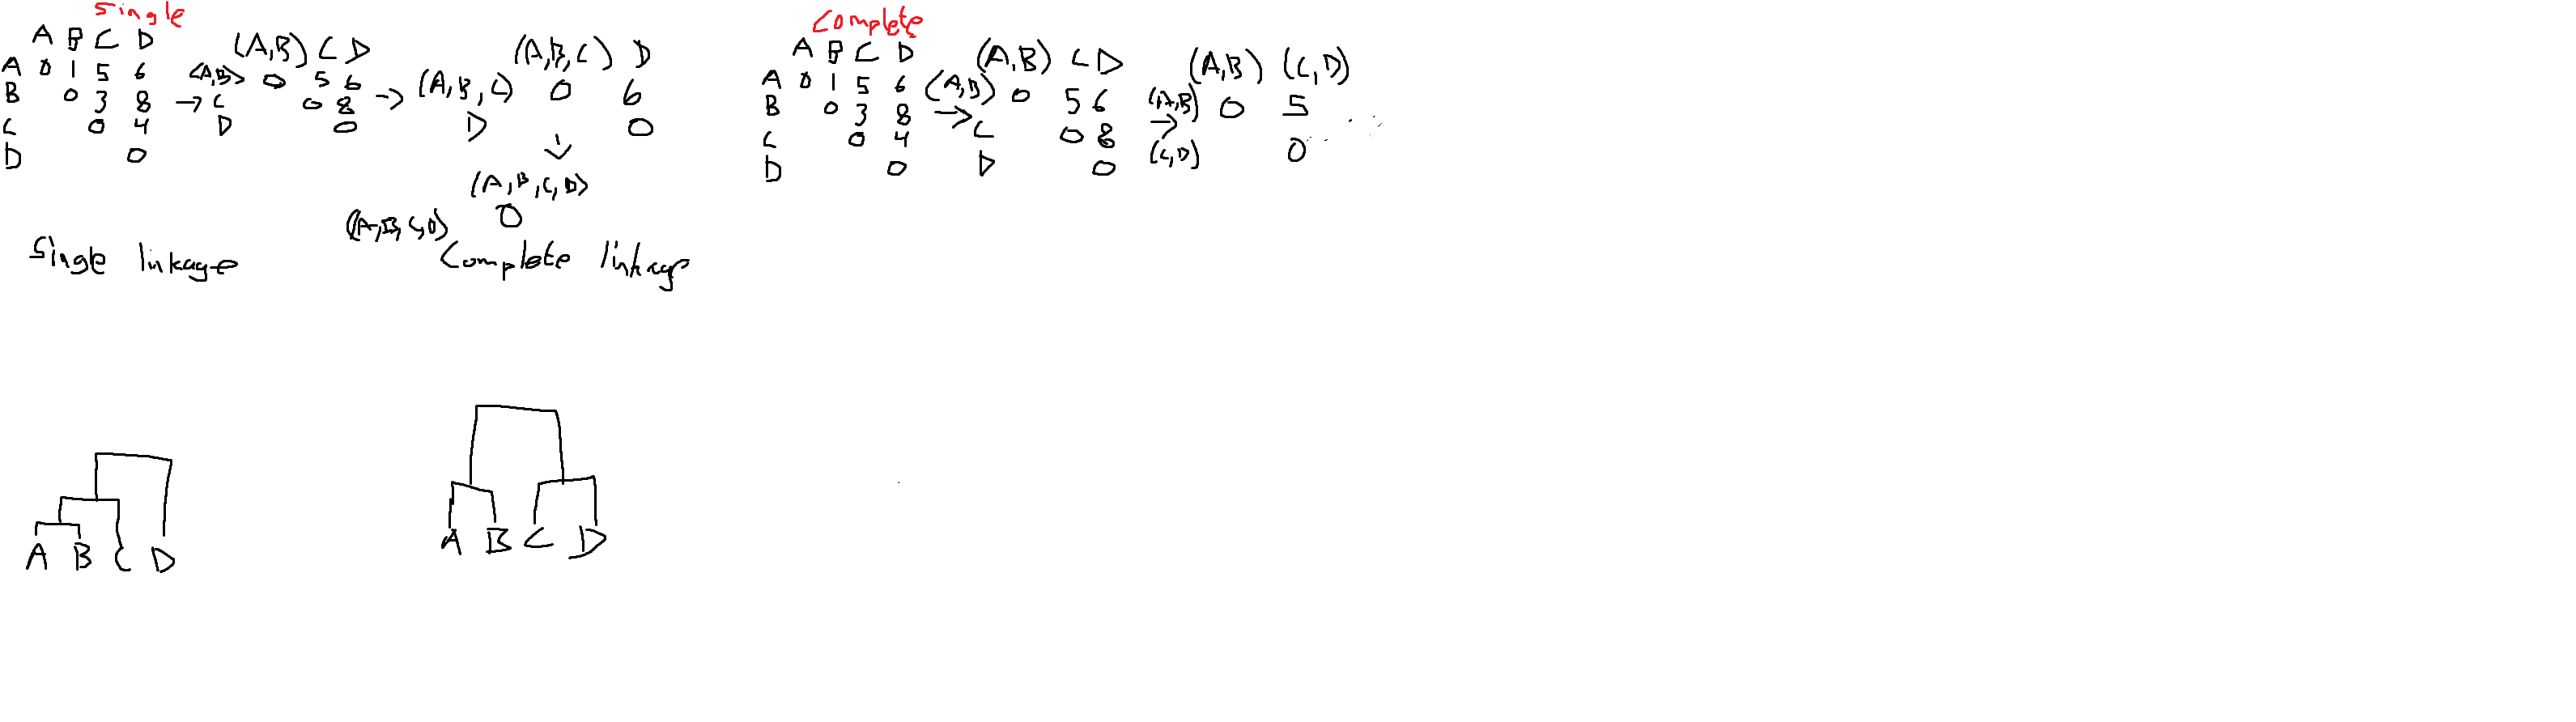 Single
A B C D
A 0 1 5 6
B 0 3 8
C 0 4
D 0
→
(A,B) C D
(A,B) 0 5 6
C 0 8
D 0
→
(A,B,C) D
(A,B,C) 0 6
D 0
↓
(A,B,C,D)
(A,B,C,D) 0
Complete
A B C D
A 0 1 5 6
B 0 3 8
C 0 4
D 0
→
(A,B) C D
(A,B) 0 5 6
C 0 8
D 0
→
(A,B) (C,D)
(A,B) 0 5
(C,D) 0
Single linkage
Complete linkage
A B C D
A B C D